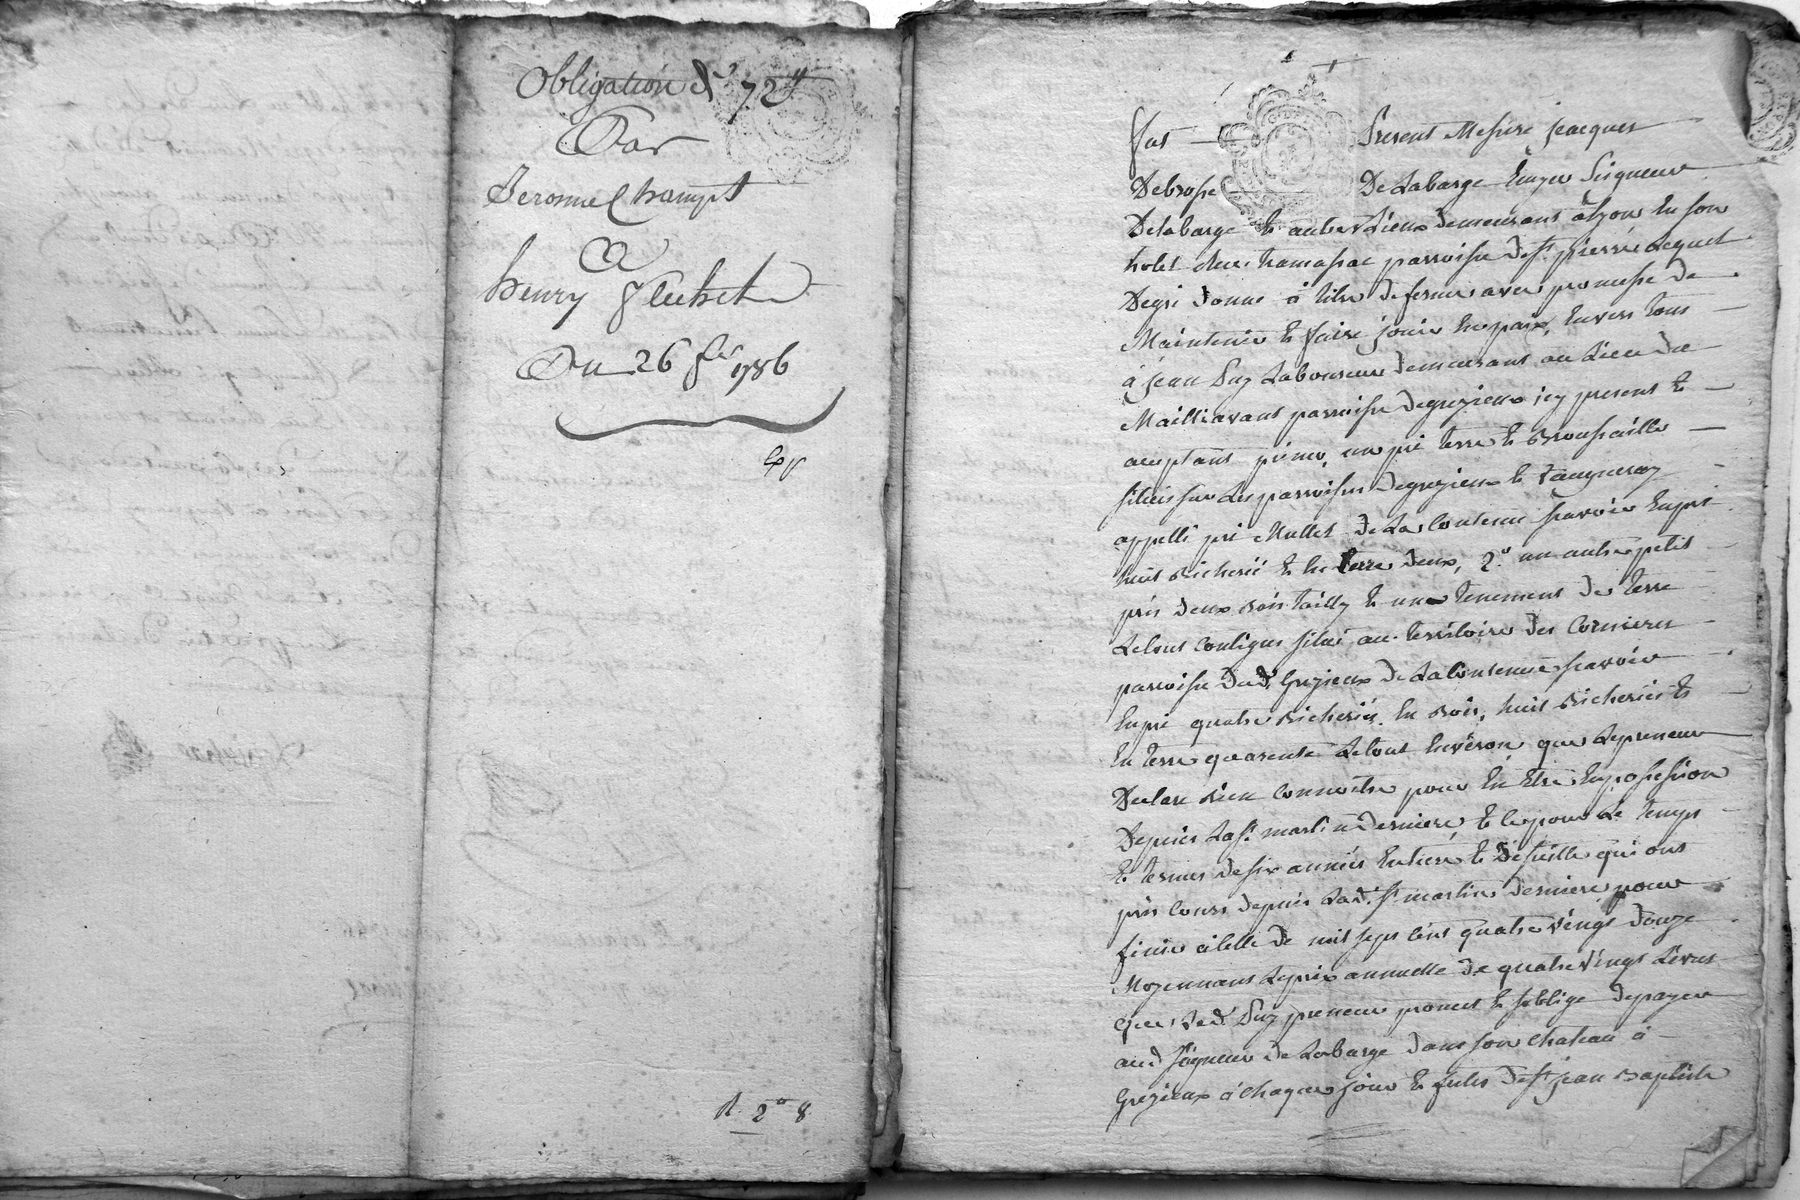 Obligation de 72 ₶
Par
Jerome Champt
A
henry flechet
Du 26 fer 1786
R. 2 8
fut Present Messire jacques
Debrosse De Labarge Ecuyer Seigneur
Delabarge et autres Lieux demeurant à Lyon En son
hotel rue parroisse de st pierre Lequel
Degré donne à titre de ferme avec promesse de
Maintenir et faire jouir En paix, Envers tous
à jean Puy Laboureur demeurant au Lieu de
Mailliavant parroisse de grezieux icy present et
aceptant primo, un pré terre et Broussaille
situés sur les parroisses de grezieux et Vaugneray
appellé pré Mullet De La Contenue scavoir En pré
huit Bicherée et En terre deux, 2.o un autre petit
pré deux Bois tailly et un tenement De terre
Letout Contigus situé au territoire des Cornieres
parroisse Dud. Grezieux De La Contenue scavoir
En pré quatre Bicherées, En Bois, huit Bicherées et
En terre quarente Letout Environ que Lepreneur
Declare Bien Connoitre pour En Etre En possession
Depuis La st. martin derniere, et ce pour Le temps
et terme de six années Entiere et de suitte qui ont
pris Cours depuis Lad. st martin derniere pour
finir à Celle de mil sept cent quatre Vingt douze
Moyennant Leprix annuelle De quatre Vingt Livres
que Led. Puy preneur promet et soblige de payer
aud Seigneur De Labarge dans son chateau à
Grezieux à chaque jour et fetes de st jean Baptiste